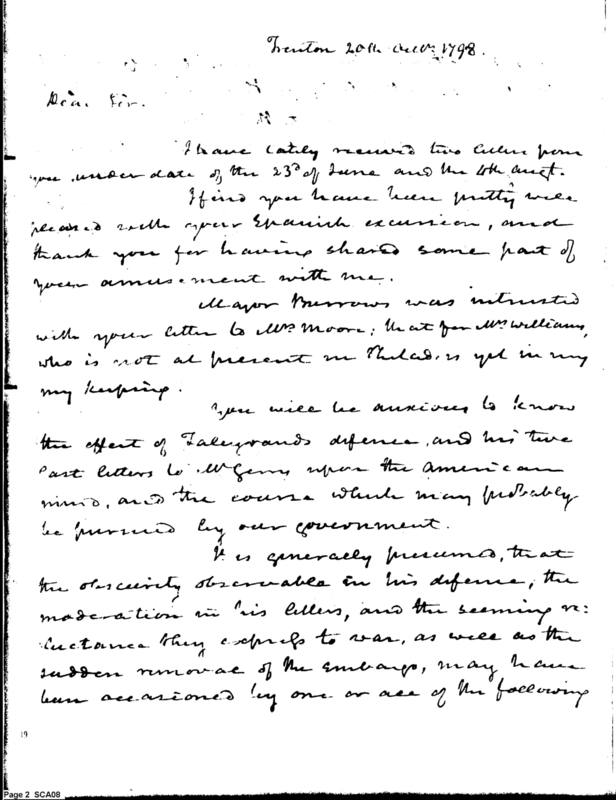 Trenton 20th Octr. 1798.
Dear Sir.
I have lately received two letters from
you under date of the 23d of June and the 4th Augt.
I find you have been pretty well
pleased with your Spanish excursion, and
thank you for having shared some part of
your amusement with me.
Major Burrows was intrusted
with your letter to Mrs Moore; that for Mrs Williams,
who is not at present in Philad. is yet in my
my keeping.
You will be anxious to know
the effect of Taleyrands defence, and his two
last letters to Mr Gerry upon the American
mind, and the course which may probably
be pursued by our government.
It is generally presumed, that
the obscurity observable in his defence, the
moderation in his letters, and the seeming re:
luctance they express to war, as well as the
sudden removal of the embargo, may have
been occasioned by one or all of the following
19
Page 2 SCA08